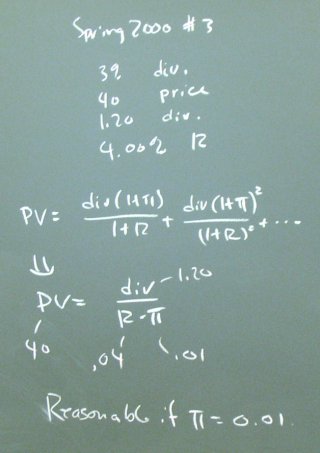 Spring 2000 #3
3% div.
40 price
1.20 div.
4.00% R
PV = div(1+π)/1+R + div(1+π)²/(1+R)² + ...
⇓
PV = div/R-π
1.20
40 .04 .01
Reasonable if π = 0.01.